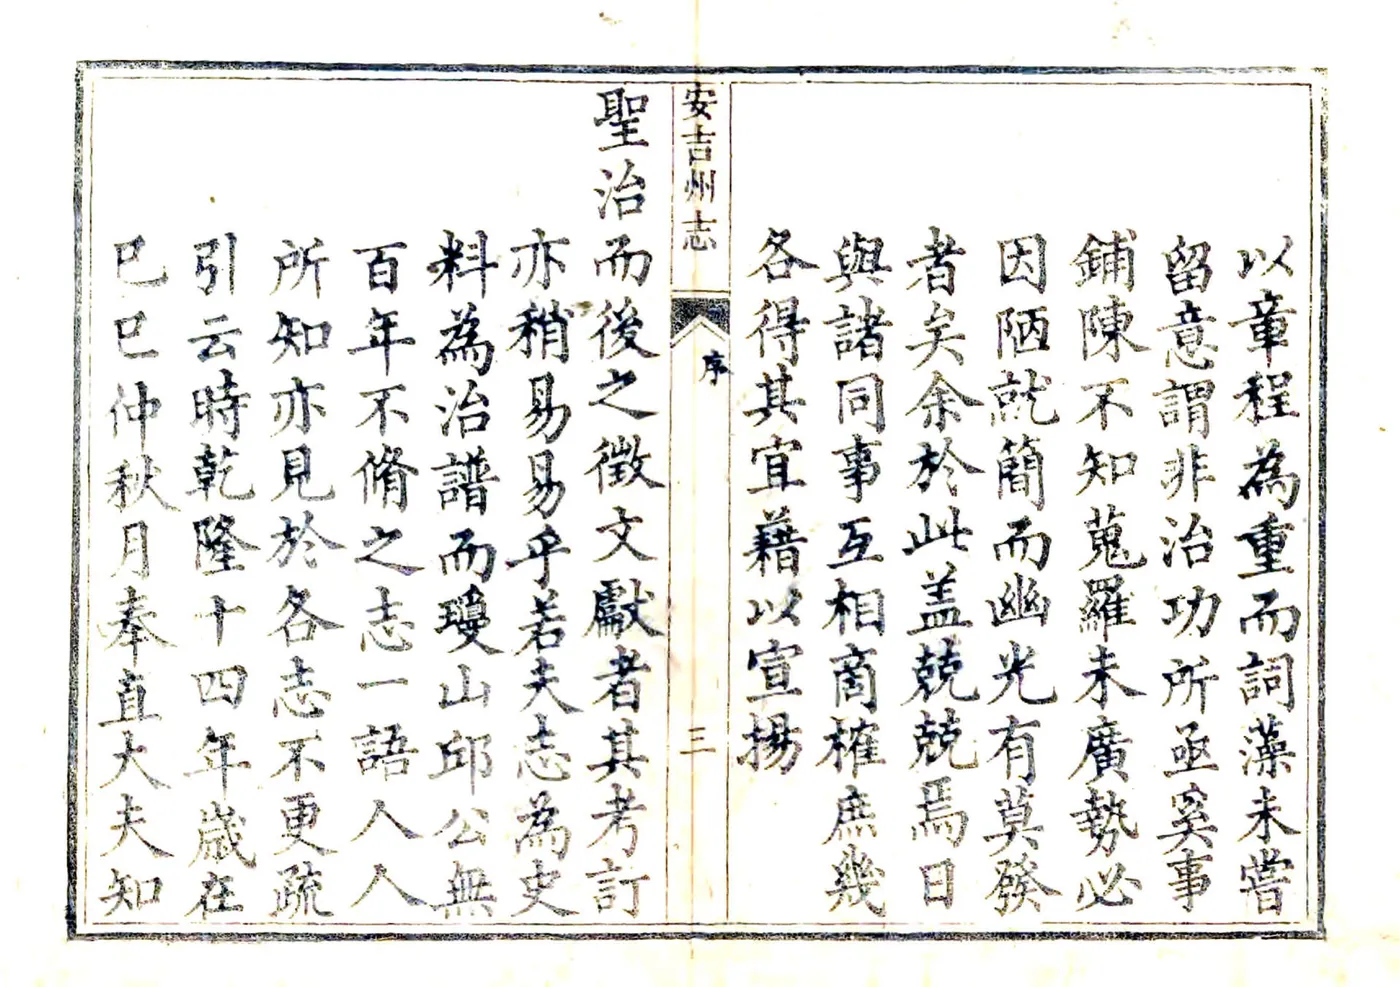 以章程為重而詞藻未嘗
留意謂非治功所亟奚事
鋪陳不知蒐羅未廣勢必
因陋就簡而幽光有莫發
者矣余於此盖兢兢焉日
與諸同事互相商榷庶幾
各得其宜藉以宣揚
安吉州志
序
三
聖治而後之徵文獻者其考訂
亦稍易易乎若夫志為史
料為治譜而瓊山邱公無
百年不脩之志一語人人
所知亦見於各志不更疏
引云時乾隆十四年歲在
巳巳仲秋月奉直大夫知